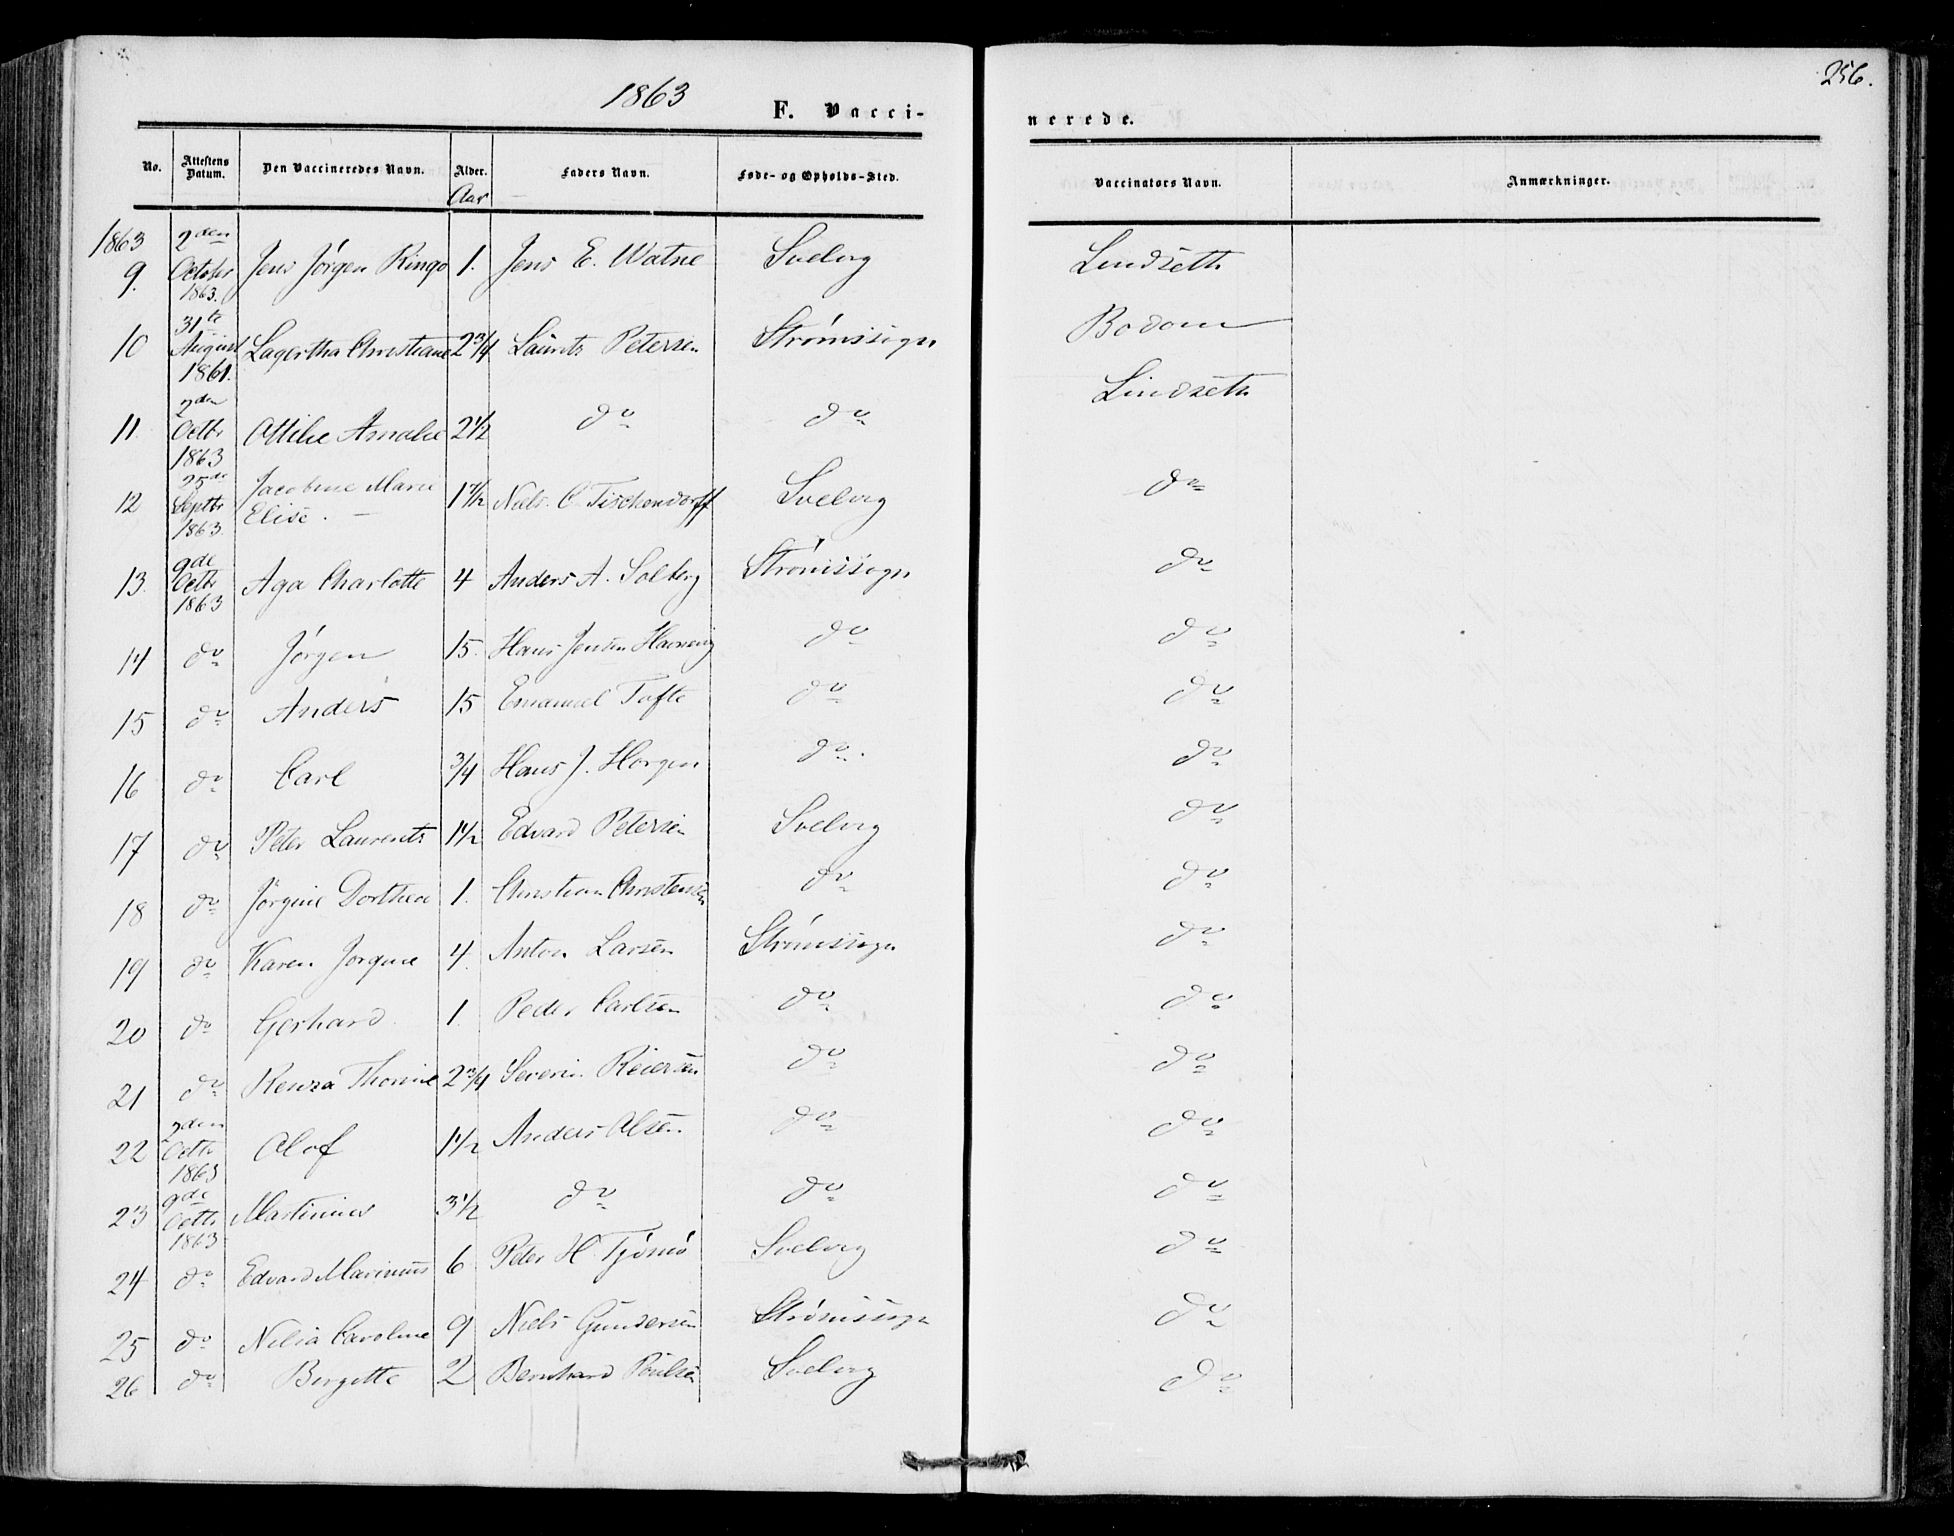 256.
1863
F. Vacci-
nerede.
No. Attestens Datum. Den Vaccineredes Navn. Alder. Faders Navn. Føde- og Opholds-Sted. Vaccinators Navn. Anmærkninger.
Aar
1863
9. 2den October 1863. Jens Jørgen Ringo 1. Jens E. Watne Svelvig Lindseth
10 31te August 1861. Lagertha Christiane 2 3/4 Laurits Petersen Strømssogn Bodom
11 2den Octbr 1863 Ottilie Amalie 2 1/2 do do Lindseth
12 25de Septbr 1863. Jacobine Marie Elise. 1 1/2 Niels C. Tischendorff Svelvig do
13. 9de Octbr 1863 Aga Charlotte 4 Anders A. Solberg Strømssogn do
14 do Jørgen 15. Hans Jensen Havnevig do do
15 do Anders 15 Emanuel Tofte do do
16 do Carl 3/4 Hans J. Horgen do. do
17 do Peter Laurents 1 1/2 Edvard Petersen Svelvig do
18 do Jørgine Dorthea 1. Christian Christensen do do
19 do Karen Jørgine 4. Anton Larsen Strømssogn do
20 do Gerhard 1. Peder Carlsen do do
21 do Thomine 2 3/4 Severin Reiersen do do
22 2den Octbr 1863 Olof 1 1/2 Anders Olsen do do
23 9de Octbr 1863 Martinius 3 1/2 do do do
24 do Edvard Marinius 6 Peter H. Tjømø Svelvig do
25 do Nilia Caroline 9 Niels Gundersen Strømssogn do
26 do Birgitte 2 Bernhard Poulsen Svelvig do